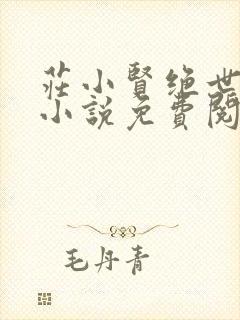 莊小賢绝世
小説免費閱
毛丹青